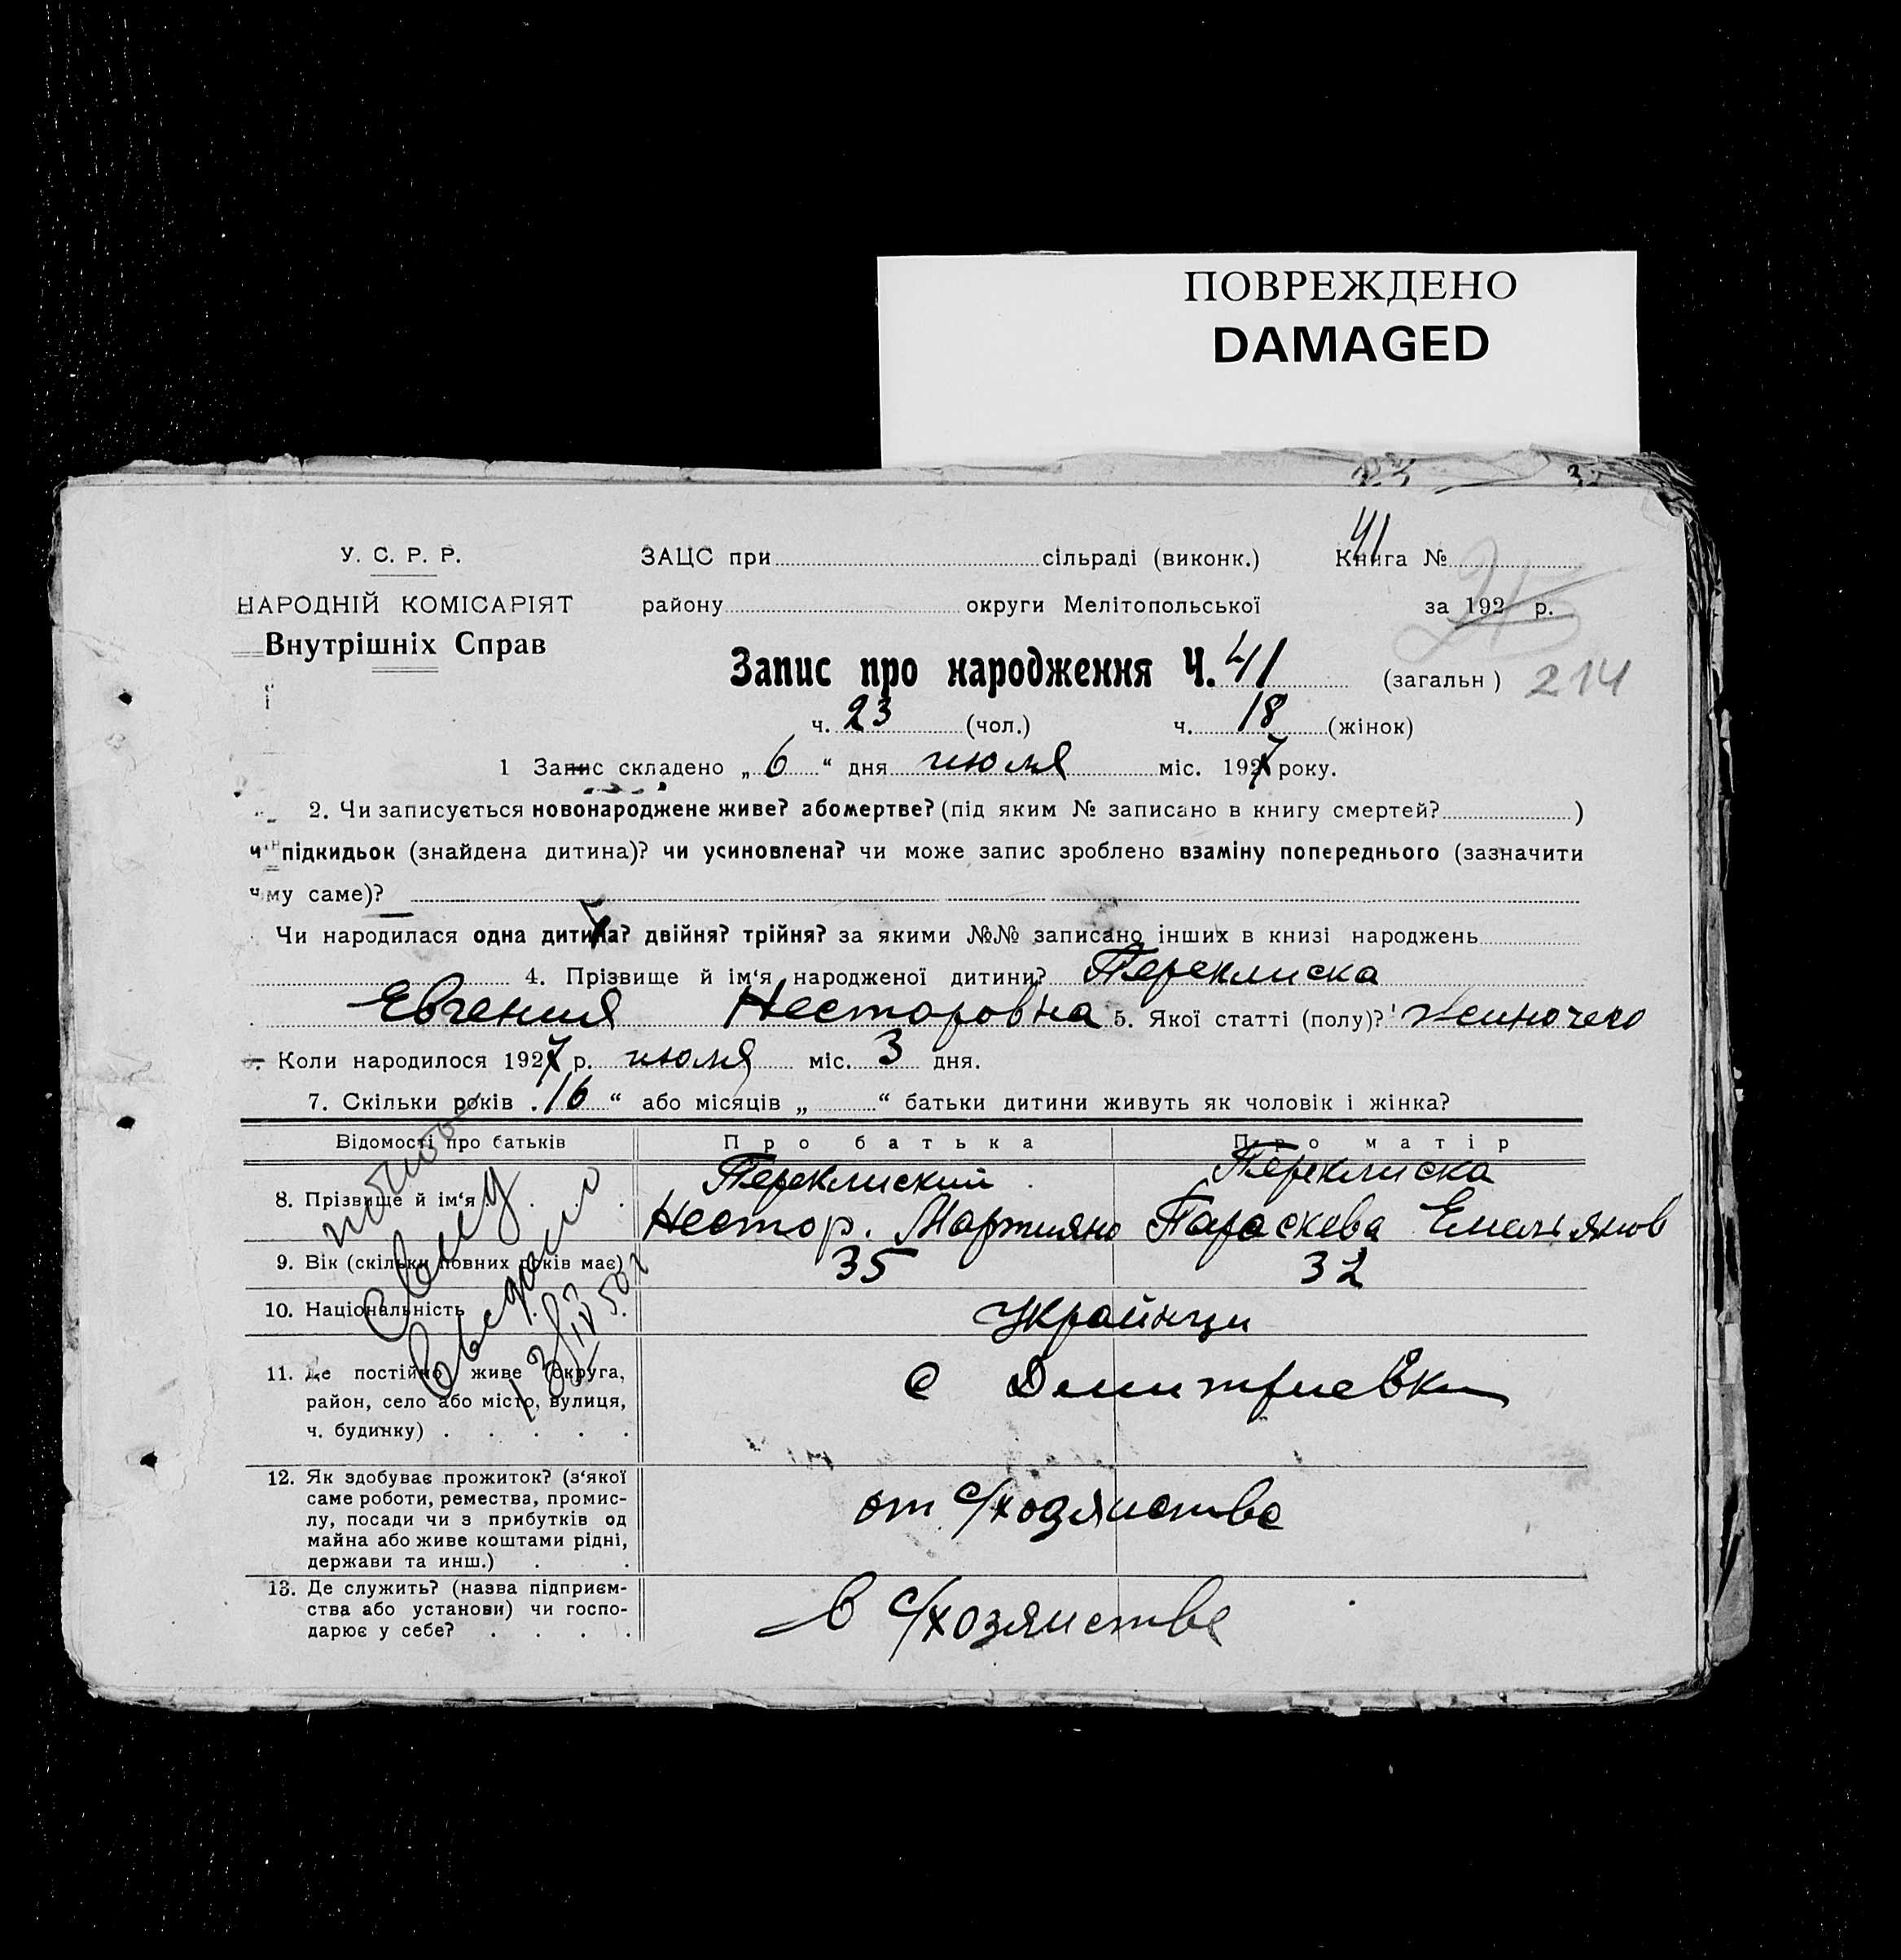 ПОВРЕЖДЕНО
DAMAGED
У. С. Р. Р.
НАРОДНІЙ КОМІСАРІЯТ
Внутрішніх Справ
ЗАЦС при сільраді (виконк.) Книга № 41
району округи Мелітопольської за 192 р.
Запис про народження Ч. 41 (загальн) 214
ч. 23 (чол.) ч. 18 (жінок)
1 Запис складено „6“ дня июля міс. 1927 року.
2. Чи записується новонароджене живе? або мертве? (під яким № записано в книгу смертей? )
підкидьок (знайдена дитина)? чи усиновлена? чи може запис зроблено взаміну попереднього (зазначити
му саме)?
Чи народилася одна дитина? двійня? трійня? за якими №№ записано інших в книзі народжень
4. Прізвище й ім‘я народженої дитини? Переклиска
Евгения Несторовна 5. Якої статті (полу)? женночего
Коли народилося 1927 р. июля міс. 3 дня.
7. Скільки років „16“ або місяців „ “ батьки дитини живуть як чоловік і жінка?
Відомості про батьків Про батька Про матір
8. Прізвище й ім‘я . . . Переклиский Переклиска
Нестор. Мартияно Параскева Емельянов
9. Вік (скільки повних років має) 35 32
10. Національність . Украйнци
11. Де постійно живе (округа,
район, село або місто, вулиця,
ч. будинку) . . . . .
с Дмитриевки
12. Як здобуває прожиток? (з‘якої
саме роботи, ремества, промис-
лу, посади чи з прибутків од
майна або живе коштами рідні,
держави та инш.) . .
от с/хозяиства
13. Де служить? (назва підприєм-
ства або установи) чи госпо-
дарює у себе? . . . .
в с/хозяистве